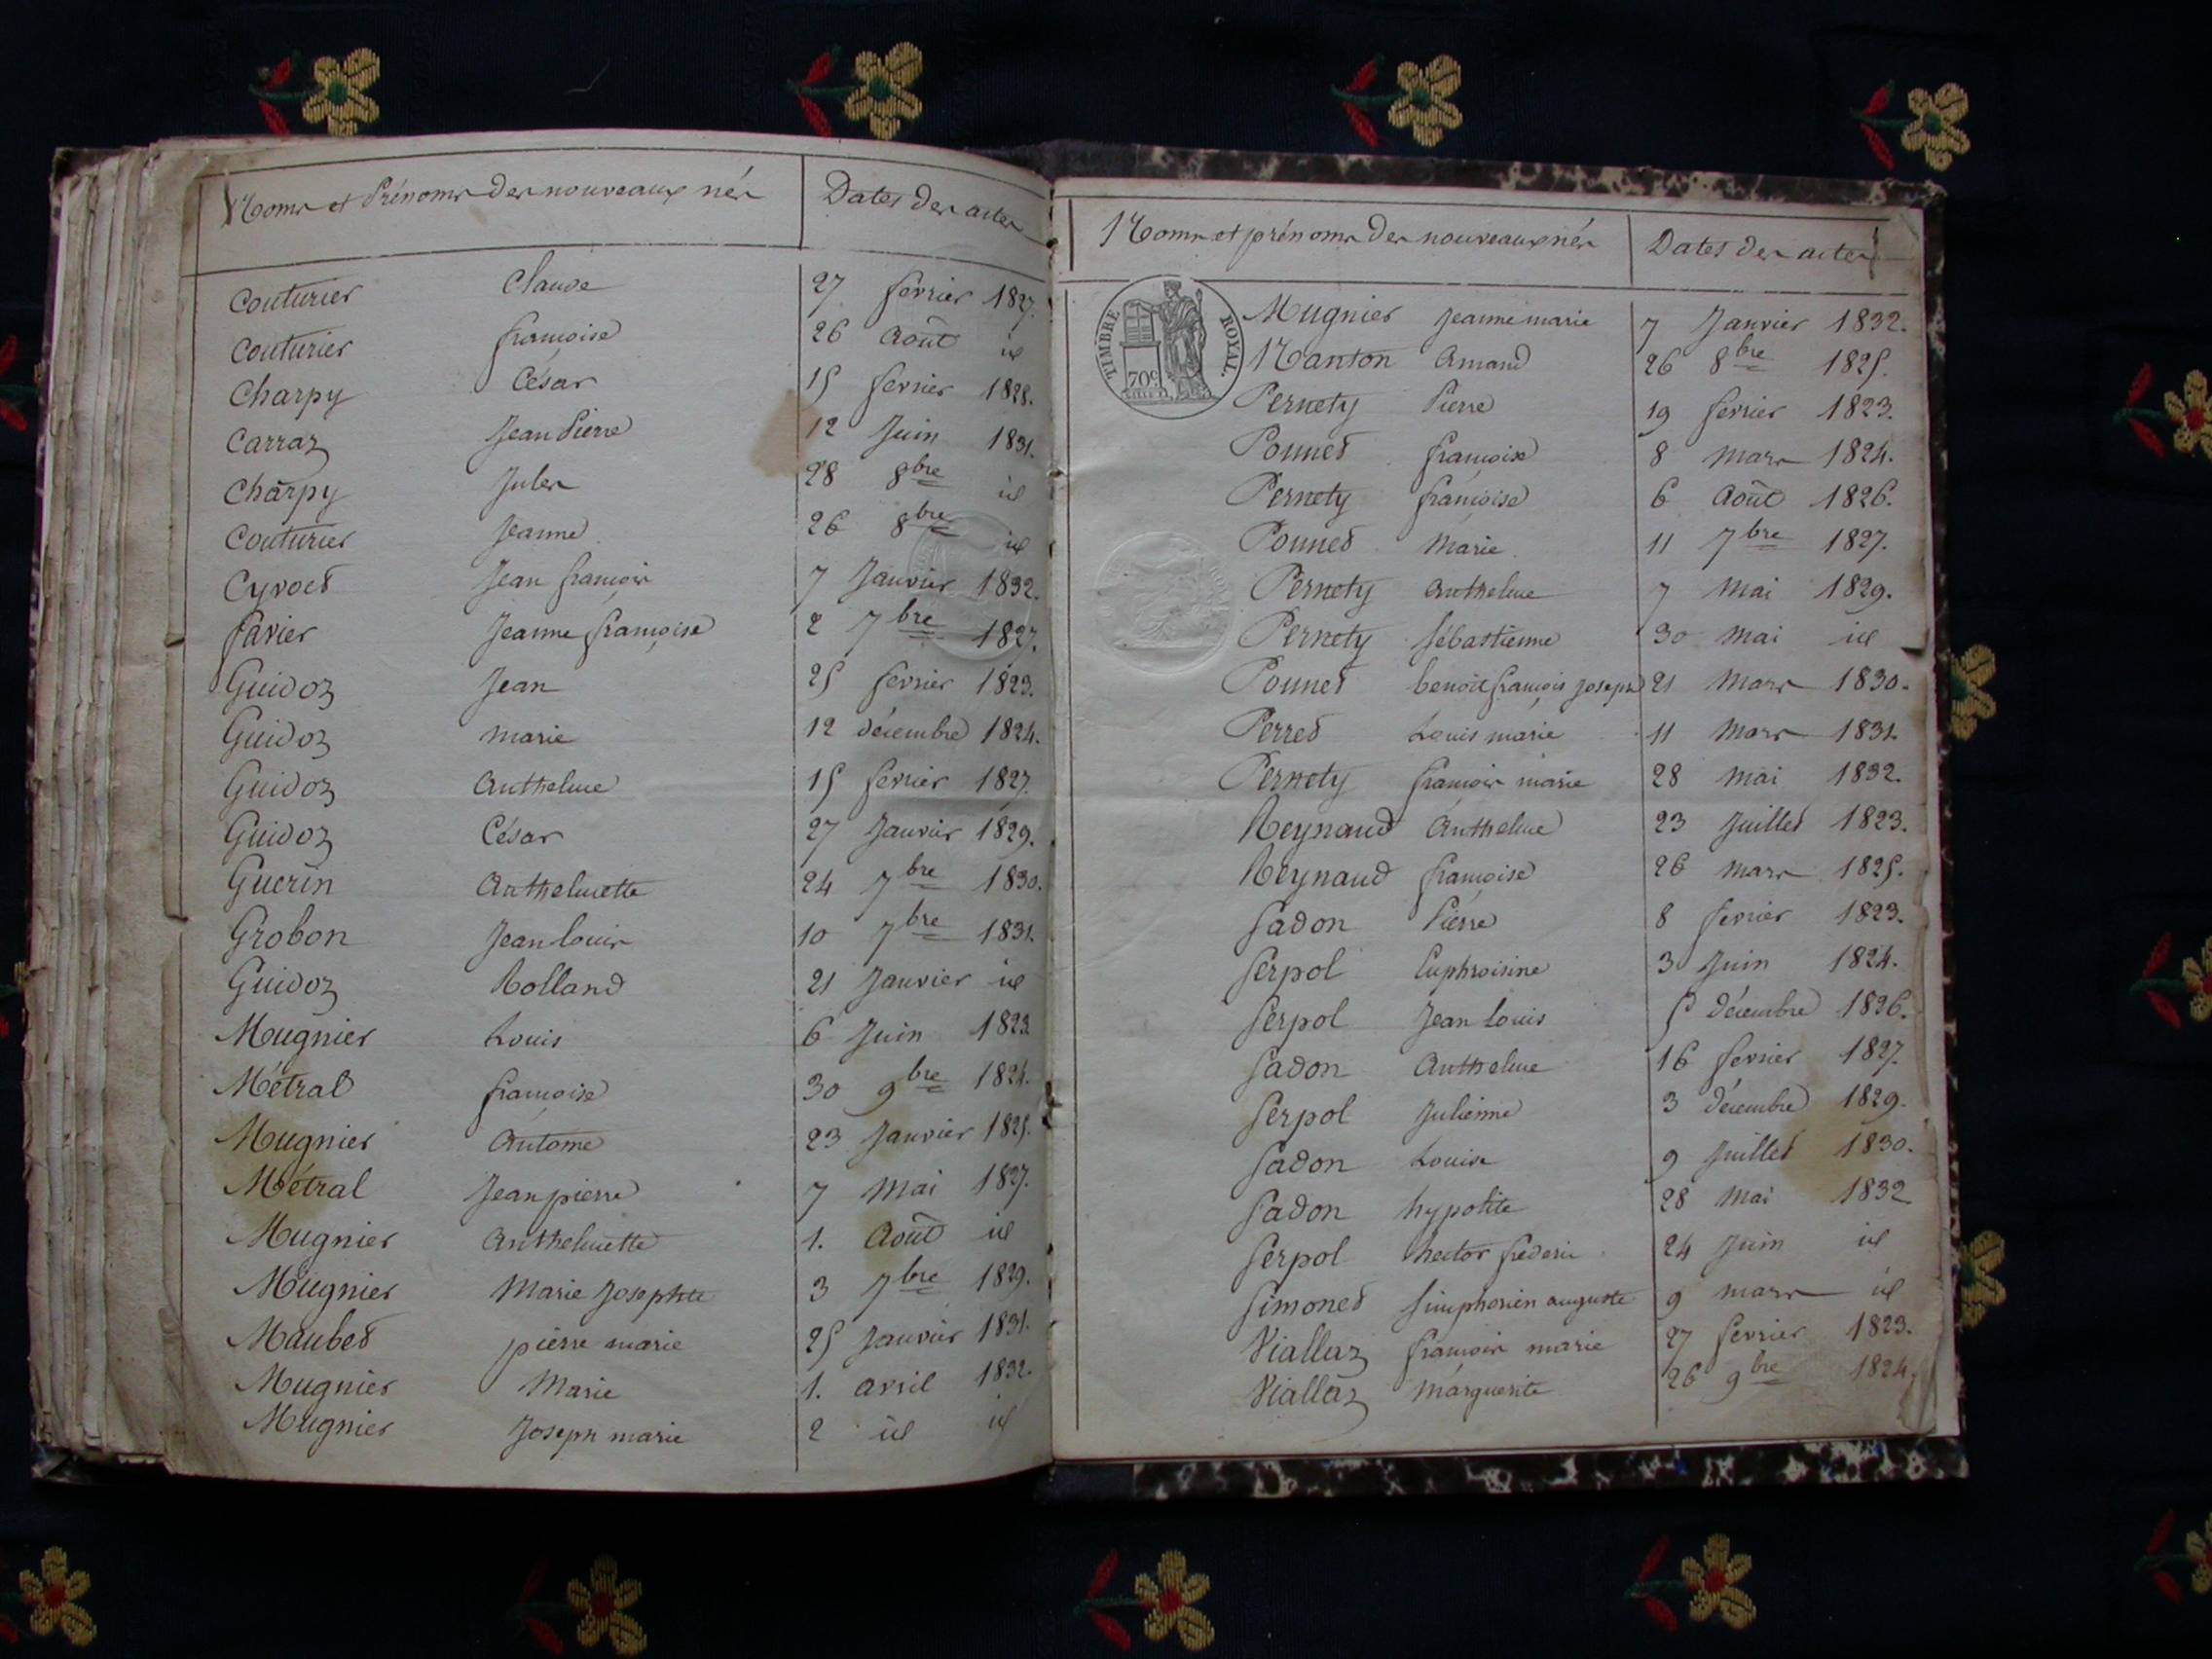 Noms et Prénoms des nouveaux nés Dates des actes
Couturier Claude 27 fevrier 1827.
Couturier françoise 26 Août id
Charpy César 15 fevrier 1828.
Carraz Jean Pierre 12 Juin 1831.
Charpy Jules 28 8bre id
Couturier Jeanne 26 8bre id
Cyvoct Jean françois 7 Janvier 1832.
favier Jeanne françoise 2 7bre 1827.
Guidoz Jean 25 fevrier 1823.
Guidoz marie 12 décembre 1824.
Guidoz Anthelme 15 fevrier 1827.
Guidoz César 27 Janvier 1829.
Guerin Anthelmette 24 7bre 1830.
Grobon Jean louis 10 7bre 1831.
Guidoz Rolland 21 Janvier id
Mugnier Louis 6 Juin 1823
Métral françoise 30 9bre 1824.
Mugnier Antoine 23 Janvier 1825.
Métral Jean pierre 7 Mai 1827.
Mugnier Anthelmette 1. Août id
Mugnier Marie Josephte 3 7bre 1829.
Maubet pierre marie 25 Janvier 1831.
Mugnier Marie 1. avril 1832.
Mugnier Joseph marie 2 id id
Noms et prénoms des nouveaux nés Dates des actes
TIMBRE ROYAL.
70c
Mugnier Jeanne marie 7 Janvier 1832.
Nanton Amand 26 8bre 1825.
Pernety Pierre 19 fevrier 1823.
Pounet françoise 8 mars 1824.
Pernety françoise 6 Août 1826.
Pounet Marie 11 7bre 1827.
Pernety Anthelme 7 Mai 1829.
Pernety Sébastienne 30 Mai id
Pounet benoit françois Joseph 21 Mars 1830.
Perret Louis marie 11 Mars 1831.
Pernety françois marie 28 Mai 1832.
Reynaud Anthelme 23 Juillet 1823.
Reynaud françoise 26 mars 1825.
Sadon Pierre 8 fevrier 1823.
Serpol Euphroisine 3 Juin 1824.
Serpol Jean Louis 5 décembre 1826.
Sadon Anthelme 16 fevrier 1827.
Serpol Julienne 3 décembre 1829.
Sadon Louise 9 Juillet 1830.
Sadon hypolite 28 Mai 1832
Serpol hector frederic 24 Juin id
Simonet Simphorien auguste 9 mars id
Viallaz françois marie 27 fevrier 1823.
Viallaz Marguerite 26 9bre 1824.